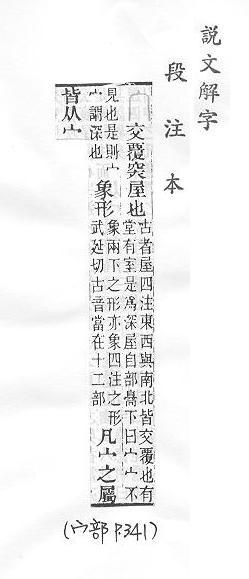 説文解字
段注本
交覆突屋也
古者屋四注東西與南北皆交覆也有
堂有室是爲深屋自部臱下曰宀宀不
見也是則宀
宀謂深也
象形
象兩下之形亦象四注之形
武延切古音當在十二部
凡宀之屬
皆从宀
(宀部 P.341)